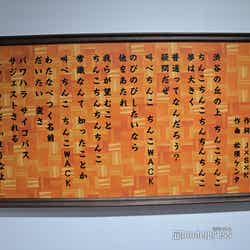 作詞 JxSxK
作曲 松隈ケンタ
渋谷の丘の上 ちんこちんこ
夢は大きく
ちんこちんこちんこちんこ
普通ってなんだろう？
疑問だぜ
叫べちんこ ちんこWACK
のびのびしたいなら
他をあたれ
我らが望むこと
ちんこちんこちんちんこ
常識なんて 知ったことか
叫べちんこ ちんこWACK
わたなべつく名前
だいたい 変さ
パワハラ サイコパス
modelpress